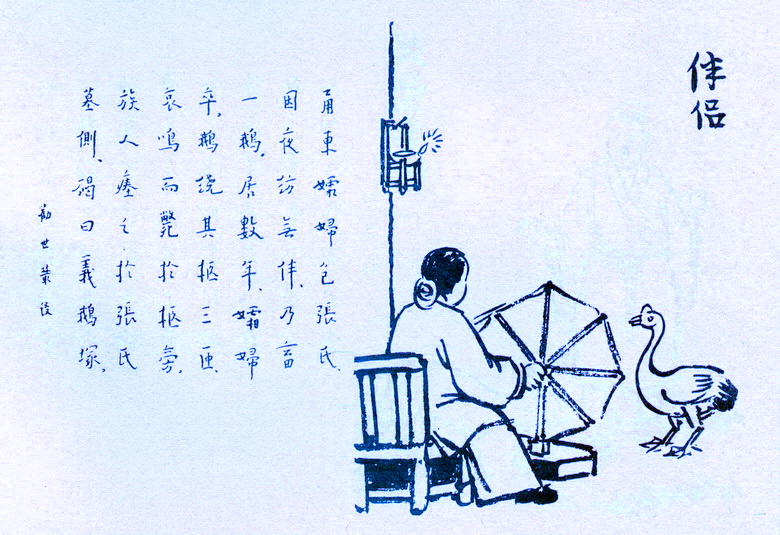 伴侶
甬東孀婦包張氏
因夜紡無伴,乃畜
一鵝,居數年,孀婦
卒,鵝繞其柩三匝
哀鳴而斃於柩旁,
族人瘞之於張氏
墓側,碣曰義鵝塚,
勸世叢談